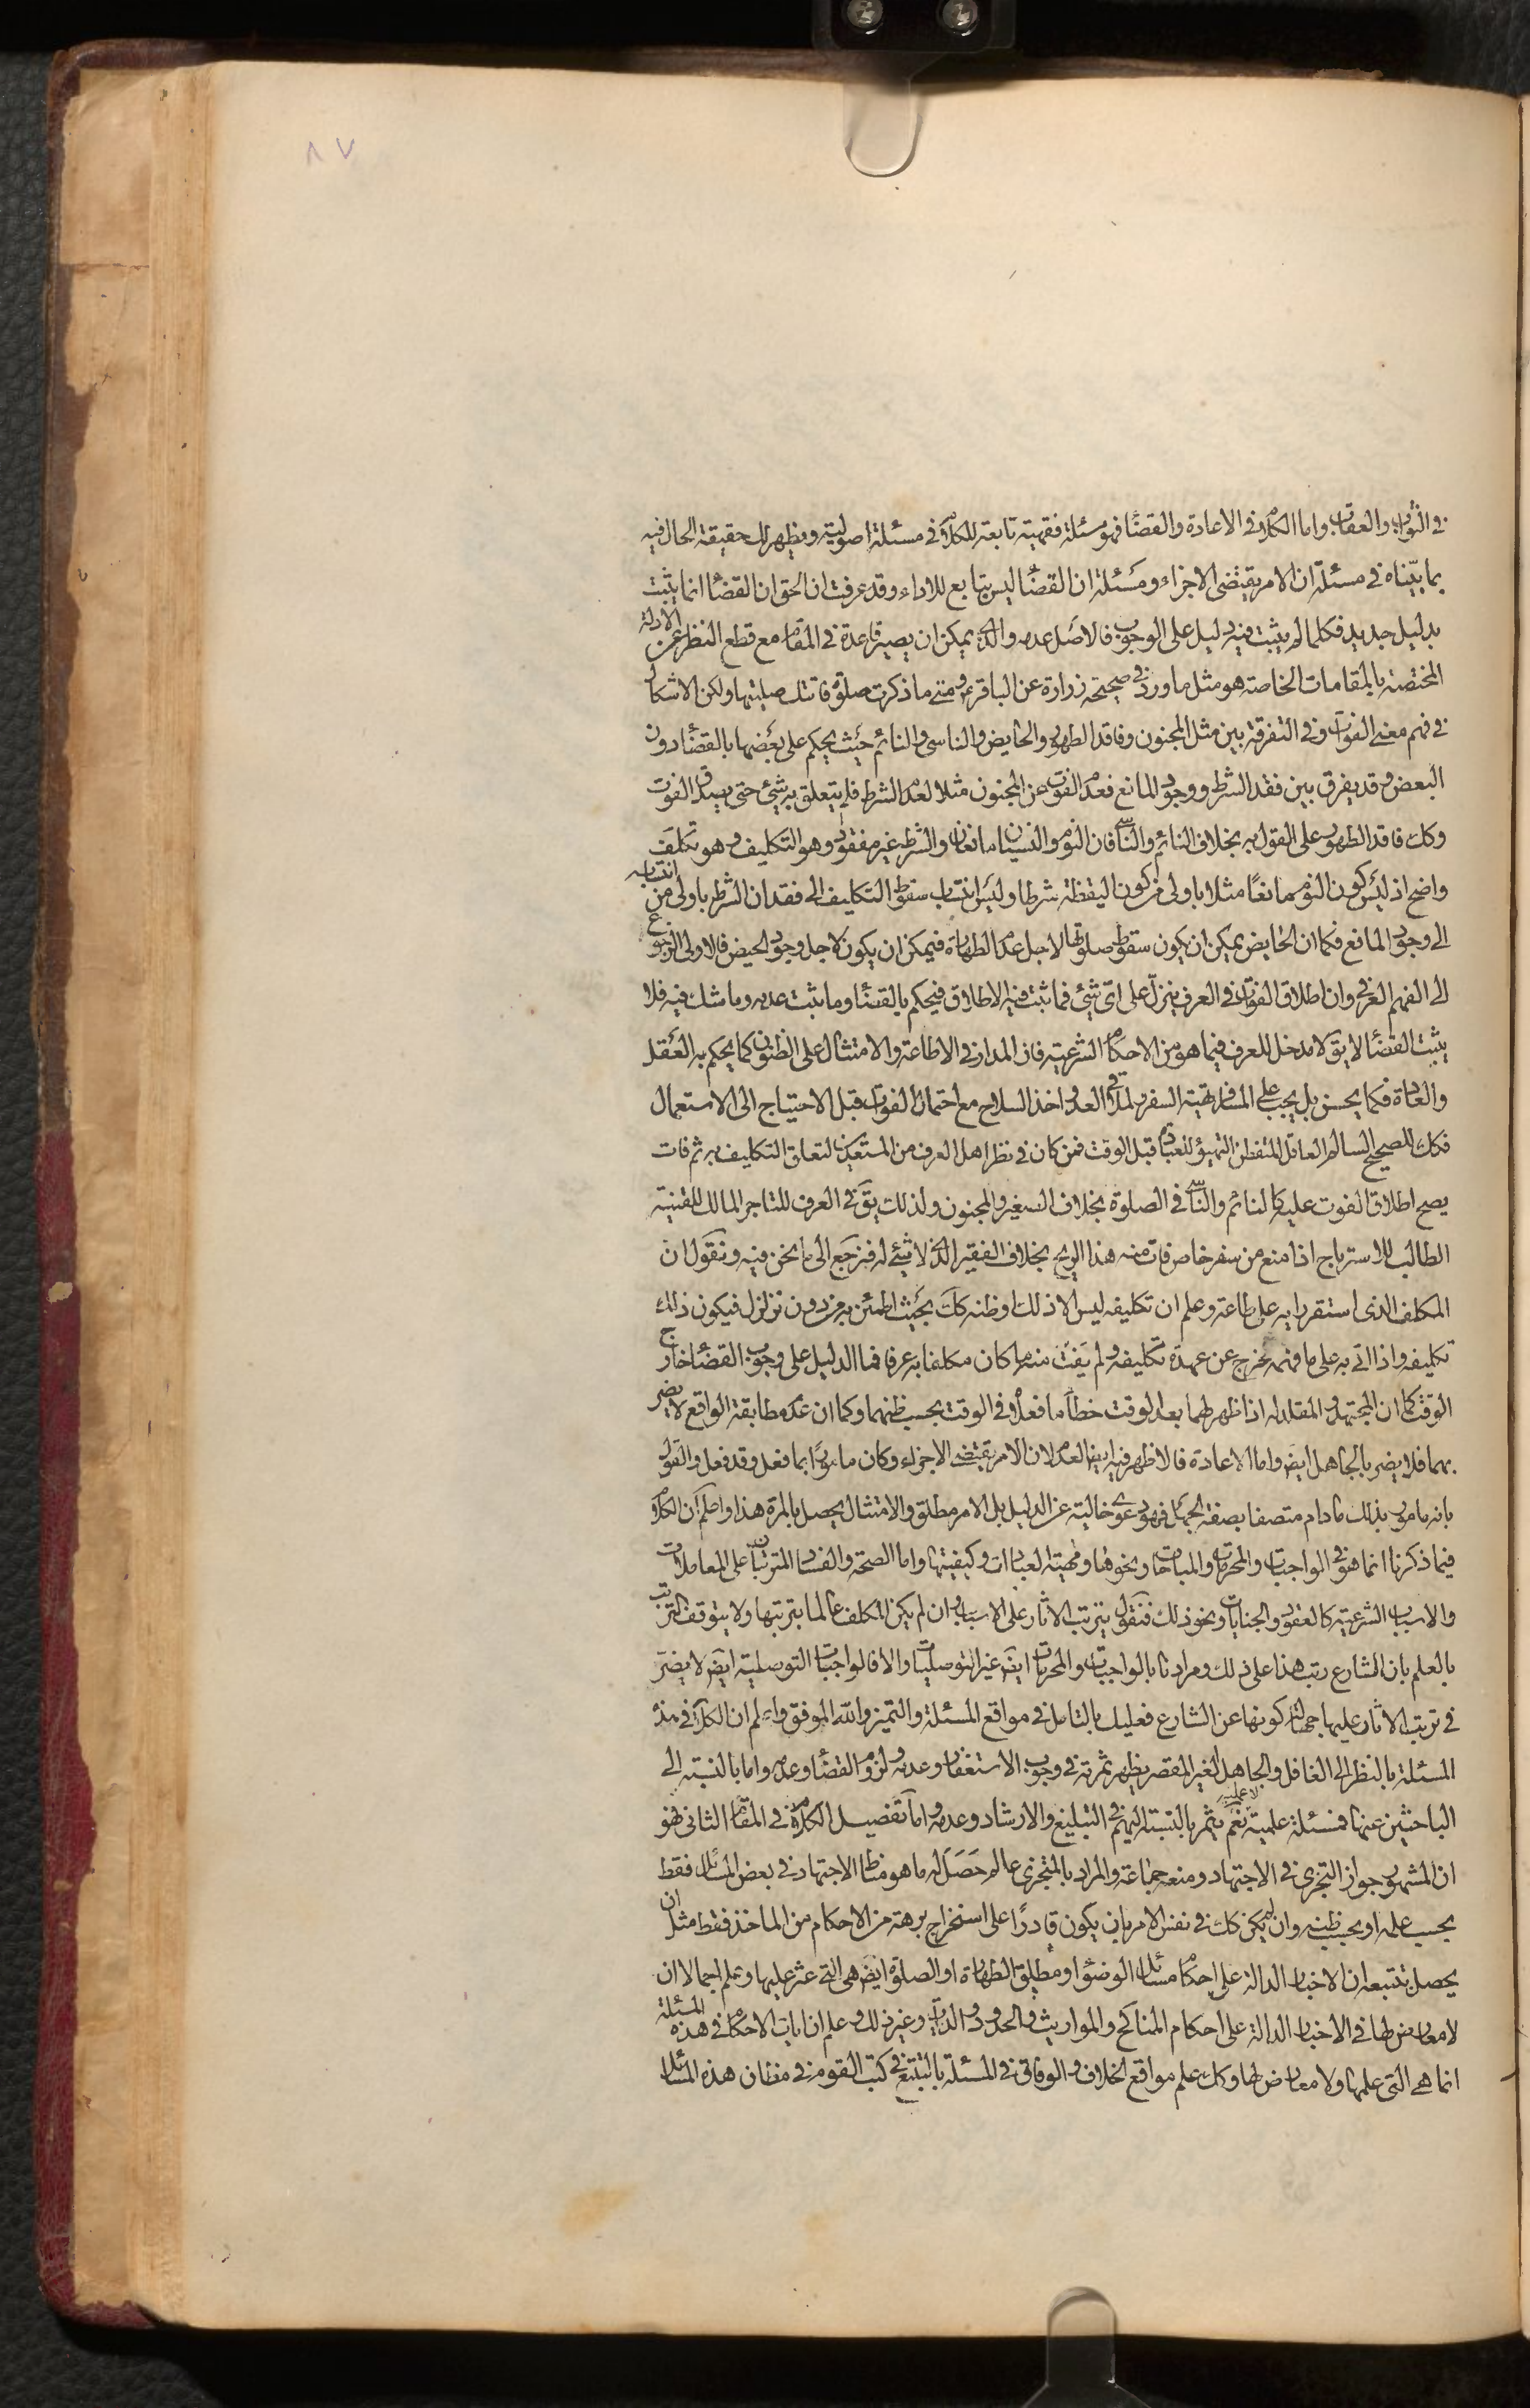 ٨٧
في الثواب والعقاب واما الكلام في الاعادة والقضاء فهو مسئلة فقهية تابعة للكلام في مسئلة اصولية ويظهر لك حقيقة الحال فيه
بما بيّناه في مسئلة ان الامر يقتضى الاجزاء ومسئلة ان القضاء ليس بتابع للاداء وقد عرفت ان الحق ان القضاء انما يثبت
بدليل جديد فكلما لم يثبت فيه دليل على الوجوب فالاصل عدمه والذى يمكن ان يصير قاعدة في المقام مع قطع النظر عن الادلة
المختصة بالمقامات الخاصة هو مثل ما ورد في صحيحة زرارة عن الباقر ع ومتى ما ذكرت صلوة فاتتك صليتها ولكن الاشكال
في فهم معنى الفوات وفي التفرقة بين مثل المجنون وفاقد الطهور والحايض والناسى والنائم حيث يحكم على بعضها بالقضاء دون
البعض وقد يفرق بين فقد الشرط ووجود المانع فعدم الفوت عن المجنون مثلا لعدم الشرط فلم يتعلق به شئ حتى يصدق الفوت
وكك فاقد الطهور على القول به بخلاف النائم والناسى فان النوم والنسيان مانعان والشرط غير مفقود وهو التكليف وهو تكلف
واضح اذ ليس كون النوم مانعًا مثلا باولى من كون اليقظة شرطا وليس انتساب سقوط التكليف الى فقدان الشرط باولى من انتسابه
الى وجود المانع فكما ان الحايض يمكن ان يكون سقوط صلوتها لاجل عدم الطهارة فيمكن ان يكون لاجل وجود الحيض فالاولى الرجوع
الى الفهم العرفي وان اطلاق الفوات في العرف ينزل على اى شئ فما ثبت فيه الاطلاق فيحكم بالقضاء وما ثبت عدمه وما شك فيه فلا
يثبت القضاء لا يق لا مدخل للعرف فيما هو من الاحكام الشرعية فان المدار في الاطاعة والامتثال على الظنون كما يحكم به العقل
والعادة فكما يحسن بل يجب على المسافر تهيئة السفر ولملاقى العدو اخذ السلاح مع احتمال الفوات قبل الاحتياج الى الاستعمال
فكك للصحيح السالم العاقل المتفطن التهيؤ للعبادة قبل الوقت فمن كان في نظر اهل العرف من المستعدين لتعلق التكليف به ثم فات
يصح اطلاق الفوت عليه كالنائم والناسى في الصلوة بخلاف الصغير والمجنون ولذلك يق في العرف للتاجر المالك للقنية
الطالب للاسترباح اذا منع من سفر خاص فات منه هذا الربح بخلاف الفقير الذى لا شئ له فنرجع الى ما نحن فيه ونقول ان
المكلف الذى استقر رايه على طاعة وعلم ان تكليفه ليس الا ذلك او ظنه كك بحيث اطمئن به من دون تزلزل فيكون ذلك
تكليفه واذا اتى به على ما فهمه يخرج عن عهدة تكليفه ولم يفت منه ما كان مكلفا به عرفا فما الدليل على وجوب القضاء خارج
الوقت كما ان المجتهد والمقلد له اذا ظهر لهما بعد الوقت خطأ ما فعلاه في الوقت بحسب ظنهما وكما ان عدم مطابقة الواقع لا يضر
بهما فلا يضر بالجاهل ايض واما الاعادة فالاظهر فيه ايض العدم لان الامر يقتضى الاجزاء وكان مامورًا بما فعل وقد فعل والقول
بانه مامور بذلك مادام متصفا بصفة الجهالة فهو دعوى خالية عن الدليل بل الامر مطلق والامتثال يحصل بالمرة هذا واعلم ان الكلام
فيما ذكرنا انما هو في الواجبات والمحرمات والمباحات ونحوها وماهية العبادات وكيفيتها واما الصحة والفساد المترتبان على المعاملات
والاسباب الشرعية كالعقود والجنايات ونحو ذلك فنقول يترتب الاثار على الاسباب وان لم يكن المكلف عالما بترتبها ولا يتوقف الترتب
بالعلم بان الشارع رتب هذا على ذلك ومرادنا بالواجبات والمحرمات ايض غير التوصليات والا فالواجبات التوصلية ايض لا يضرّ
في ترتب الاثار عليها جهالة كونها عن الشارع فعليك بالتامل في مواقع المسئلة والتميز والله الموفق واعلم ان الكلام في هذه
المسئلة بالنظر الى الغافل والجاهل الغير المقصر يظهر ثمرته في وجوب الاستغفار وعدمه ولزوم القضاء وعدمه واما بالنسبة الى
الباحثين عنها فمسئلة علمية لا عملية نعم يثمر بالنسبة اليهم في التبليغ والارشاد وعدمه واما تفصيل الكلام في المقام الثانى فهو
ان المشهور جواز التجزى في الاجتهاد ومنعه جماعة والمراد بالمتجزى عالم حصل له ما هو مناط الاجتهاد في بعض المسائل فقط
بحسب علمه او بحسب ظنه وان لم يكن كك في نفس الامر بان يكون قادرًا على استخراج برهة من الاحكام من الماخذ فقط مثل ان
يحصل بتتبعه ان الاخبار الدالة على احكام مسائل الوضوء او مطلق الطهارة او الصلوة ايض هى التى عثر عليها وعلم اجمالا ان
لا معارض لها في الاخبار الدالة على احكام المناكح والمواريث والحدود والديات وغير ذلك وعلم ان ايات الاحكام في هذه المسئلة
انما هى التى علمها ولا معارض لها وكك علم مواقع الخلاف والوفاق في المسئلة بالتتبع في كتب القوم في مظان هذه المسائل